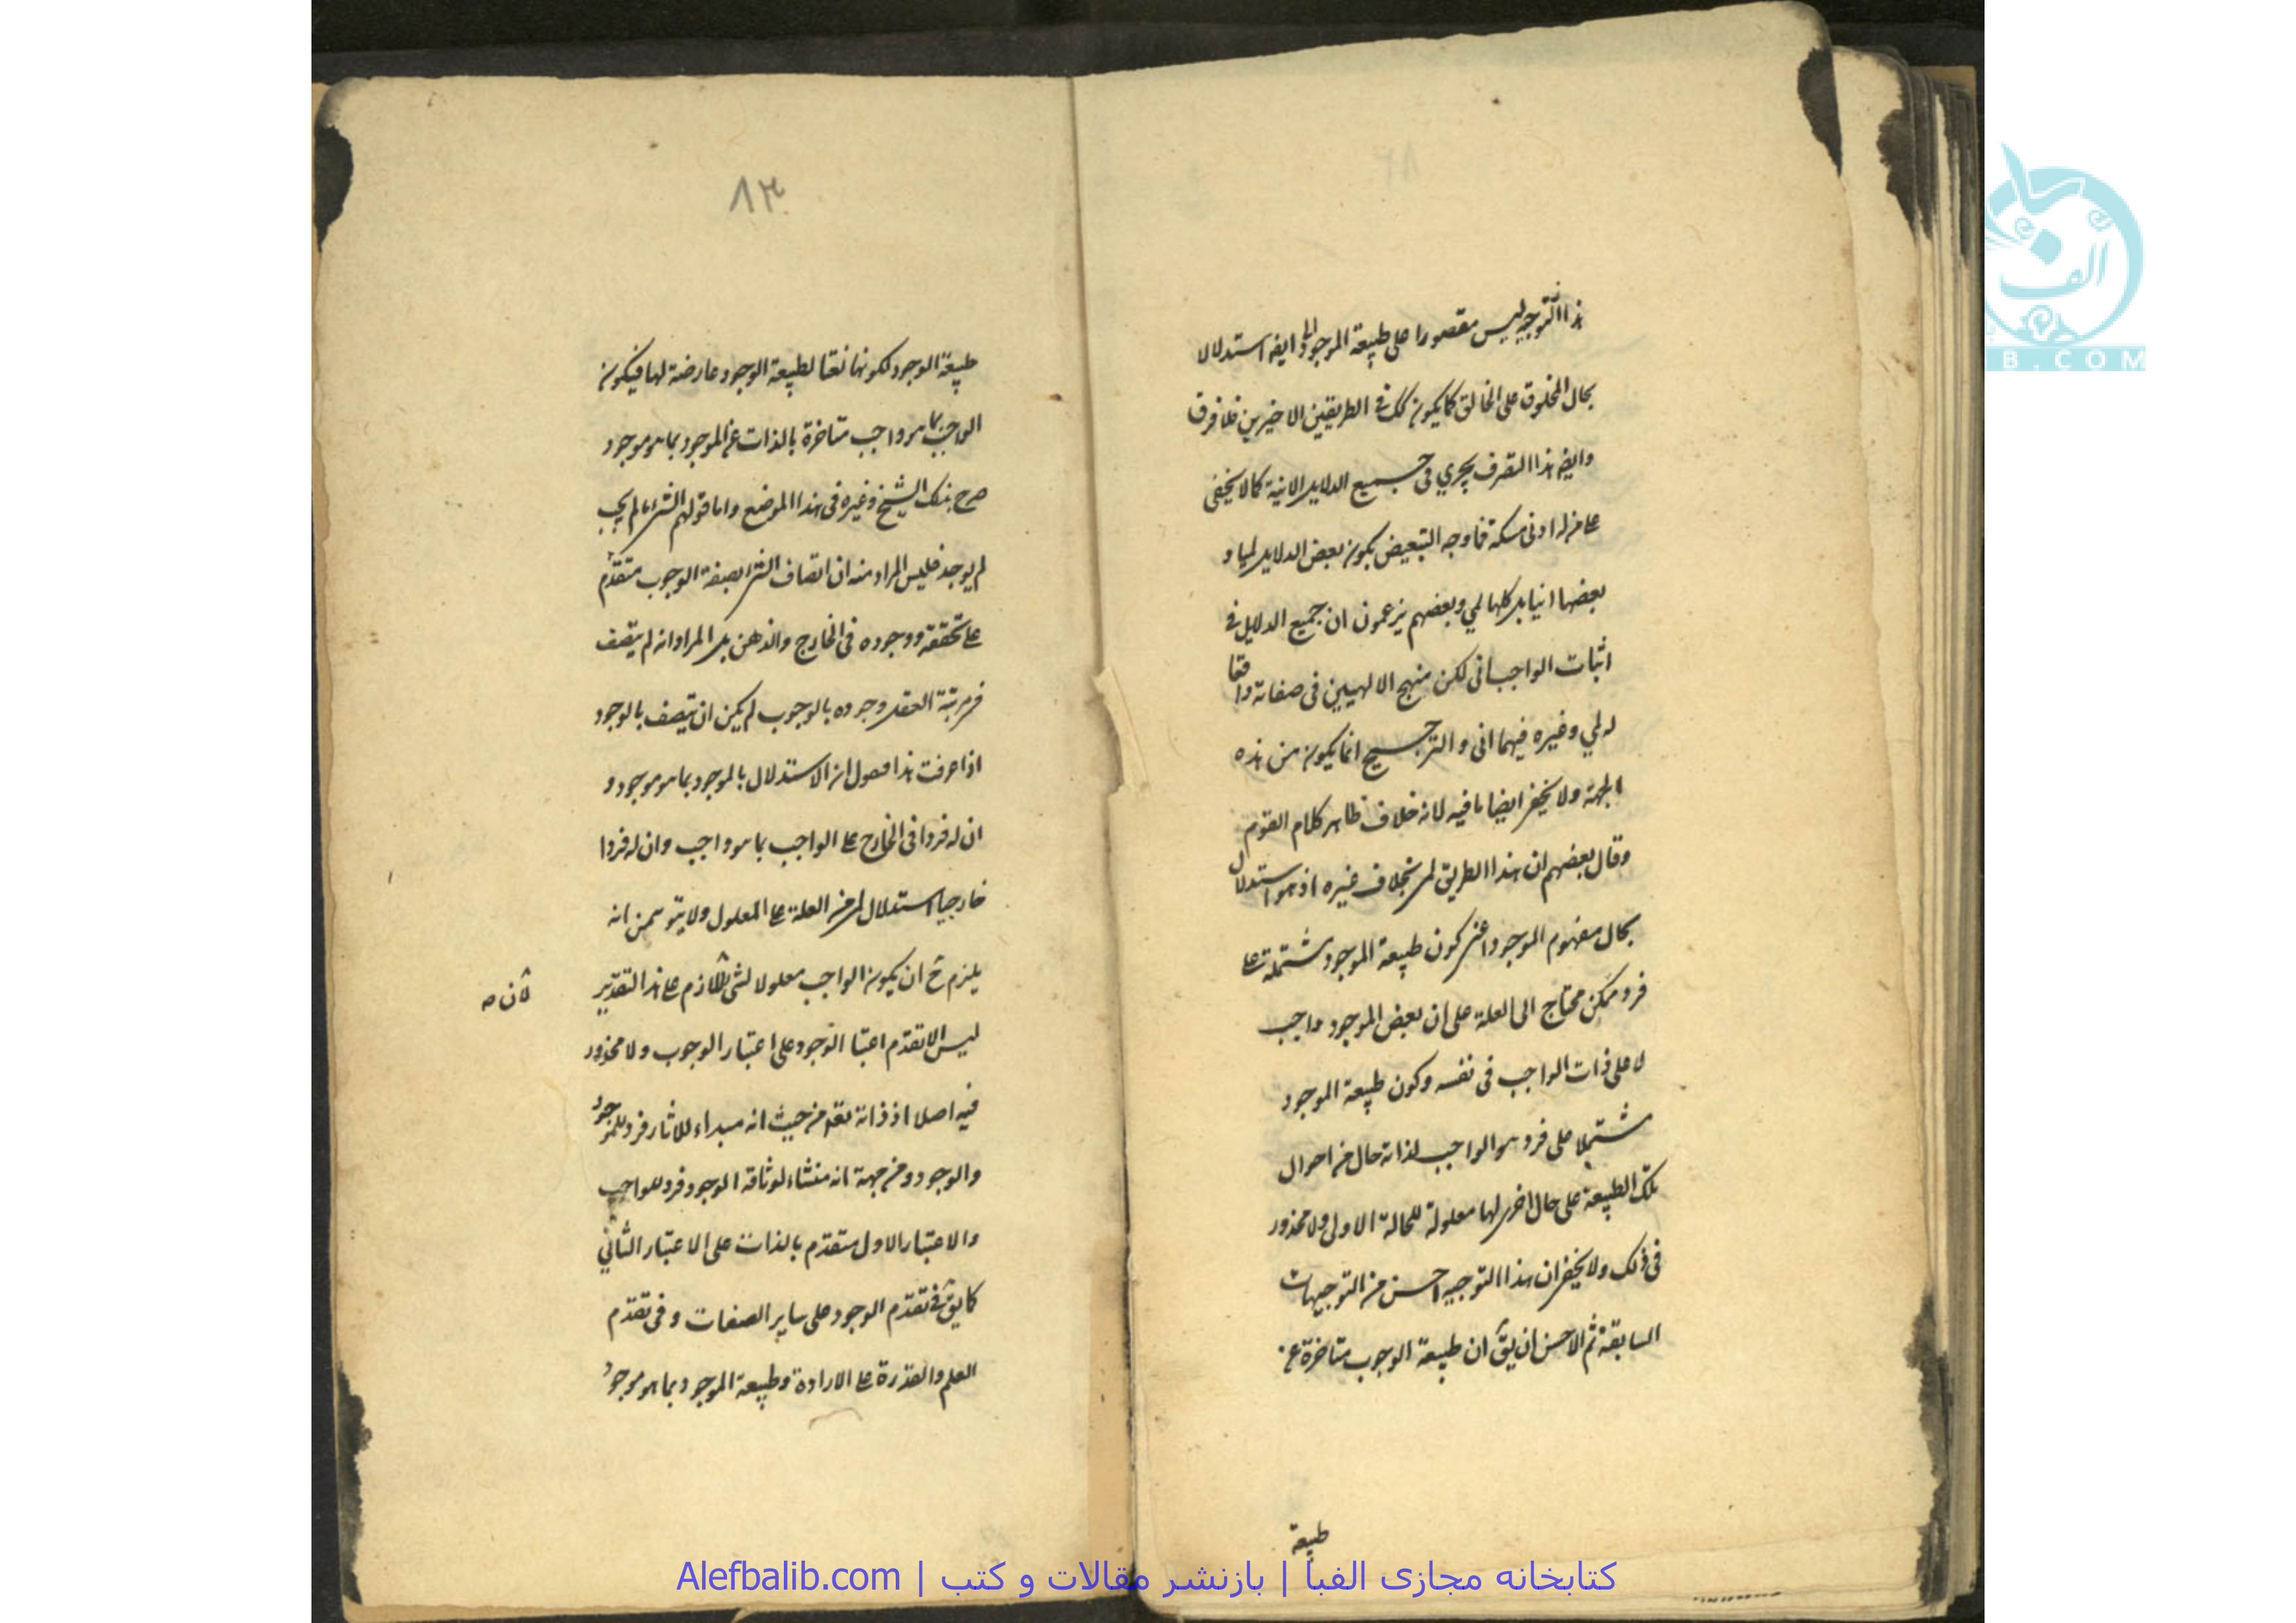 هذا التوجيه ليس مقصورا على طبيعة الموجود ايضا استدلالا
بحال المخلوق على الخالق كما يكون كك في الطريقين الاخيرين فلا فرق
وايضه هذا التصرف يجري في جميع الدلايل الانية كما لا يخفى
على من له ادنى مسكة فما وجه التبعيض بكون بعض الدلايل لميا و
بعضها انيا بل كلها لمي وبعضهم يزعمون ان جميع الدلايل في
اثبات الواجب اني لكن منهج الالهيين في صفاته وافعا
له لمي وغيره فيهما اني والترجيح انما يكون من هذه
الجهة ولا يخفى ايضا ما فيه لانه خلاف ظاهر كلام القوم
وقال بعضهم ان هذا الطريق لمي بخلاف غيره اذ هو استدلال
بحال مفهوم الموجود اعني كون طبيعة الموجود مشتملة على
فرد ممكن محتاج الى العلة على ان بعض الموجود واجب
لا على ذات الواجب في نفسه وكون طبيعة الموجود
مشتملا على فرد هو الواجب لذاته حال من احوال
تلك الطبيعة على حال اخرى لها معلولة للحالة الاولى ولا محذور
في ذلك ولا يخفى ان هذا التوجيه احسن من التوجيهات
السابقة ثم الاحسن ان يق ان طبيعة الوجوب متاخرة عن
طبيعة
٨٣
طبيعة الوجود لكونها نعتا لطبيعة الوجود عارضة لها فيكون
الواجب بما هو واجب متاخرة بالذات عن الموجود بما هو موجود
صرح بذلك الشيخ وغيره في هذا الموضع واما قولهم الشئ ما لم يجب
لم يوجد فليس المراد منه ان اتصاف الشئ بصفة الوجوب متقدم
على تحققه ووجوده في الخارج والذهن بل المراد انه لم يتصف
في مرتبة العقل وجوده بالوجوب لم يكن ان يتصف بالوجود
اذا عرفت هذا فنقول ان الاستدلال بالموجود بما هو موجود و
ان له فردا في الخارج على الواجب بما هو واجب وان له فردا
خارجيا استدلال لمي من العلة على المعلول ولا يتوهمن انه
يلزم ح ان يكون الواجب معلولا لشئ اللازم على هذا التقدير
لان صه
ليس الا تقدم اعتبا الوجود على اعتبار الوجوب ولا محذور
فيه اصلا اذ ذاته تعه من حيث انه مبداء للاثار فرد للموجود
والوجود ومن جهة انه منشاء لوثاقة الوجود فرد للواجب
والاعتبار الاول متقدم بالذات على الاعتبار الثاني
كما يق في تقدم الوجود على ساير الصفات وفي تقدم
العلم والقدرة على الارادة وطبيعة الموجود بما هو موجود
كتابخانه مجازی الفبا | بازنشر مقالات و کتب | Alefbalib.com
الفبا
B.COM